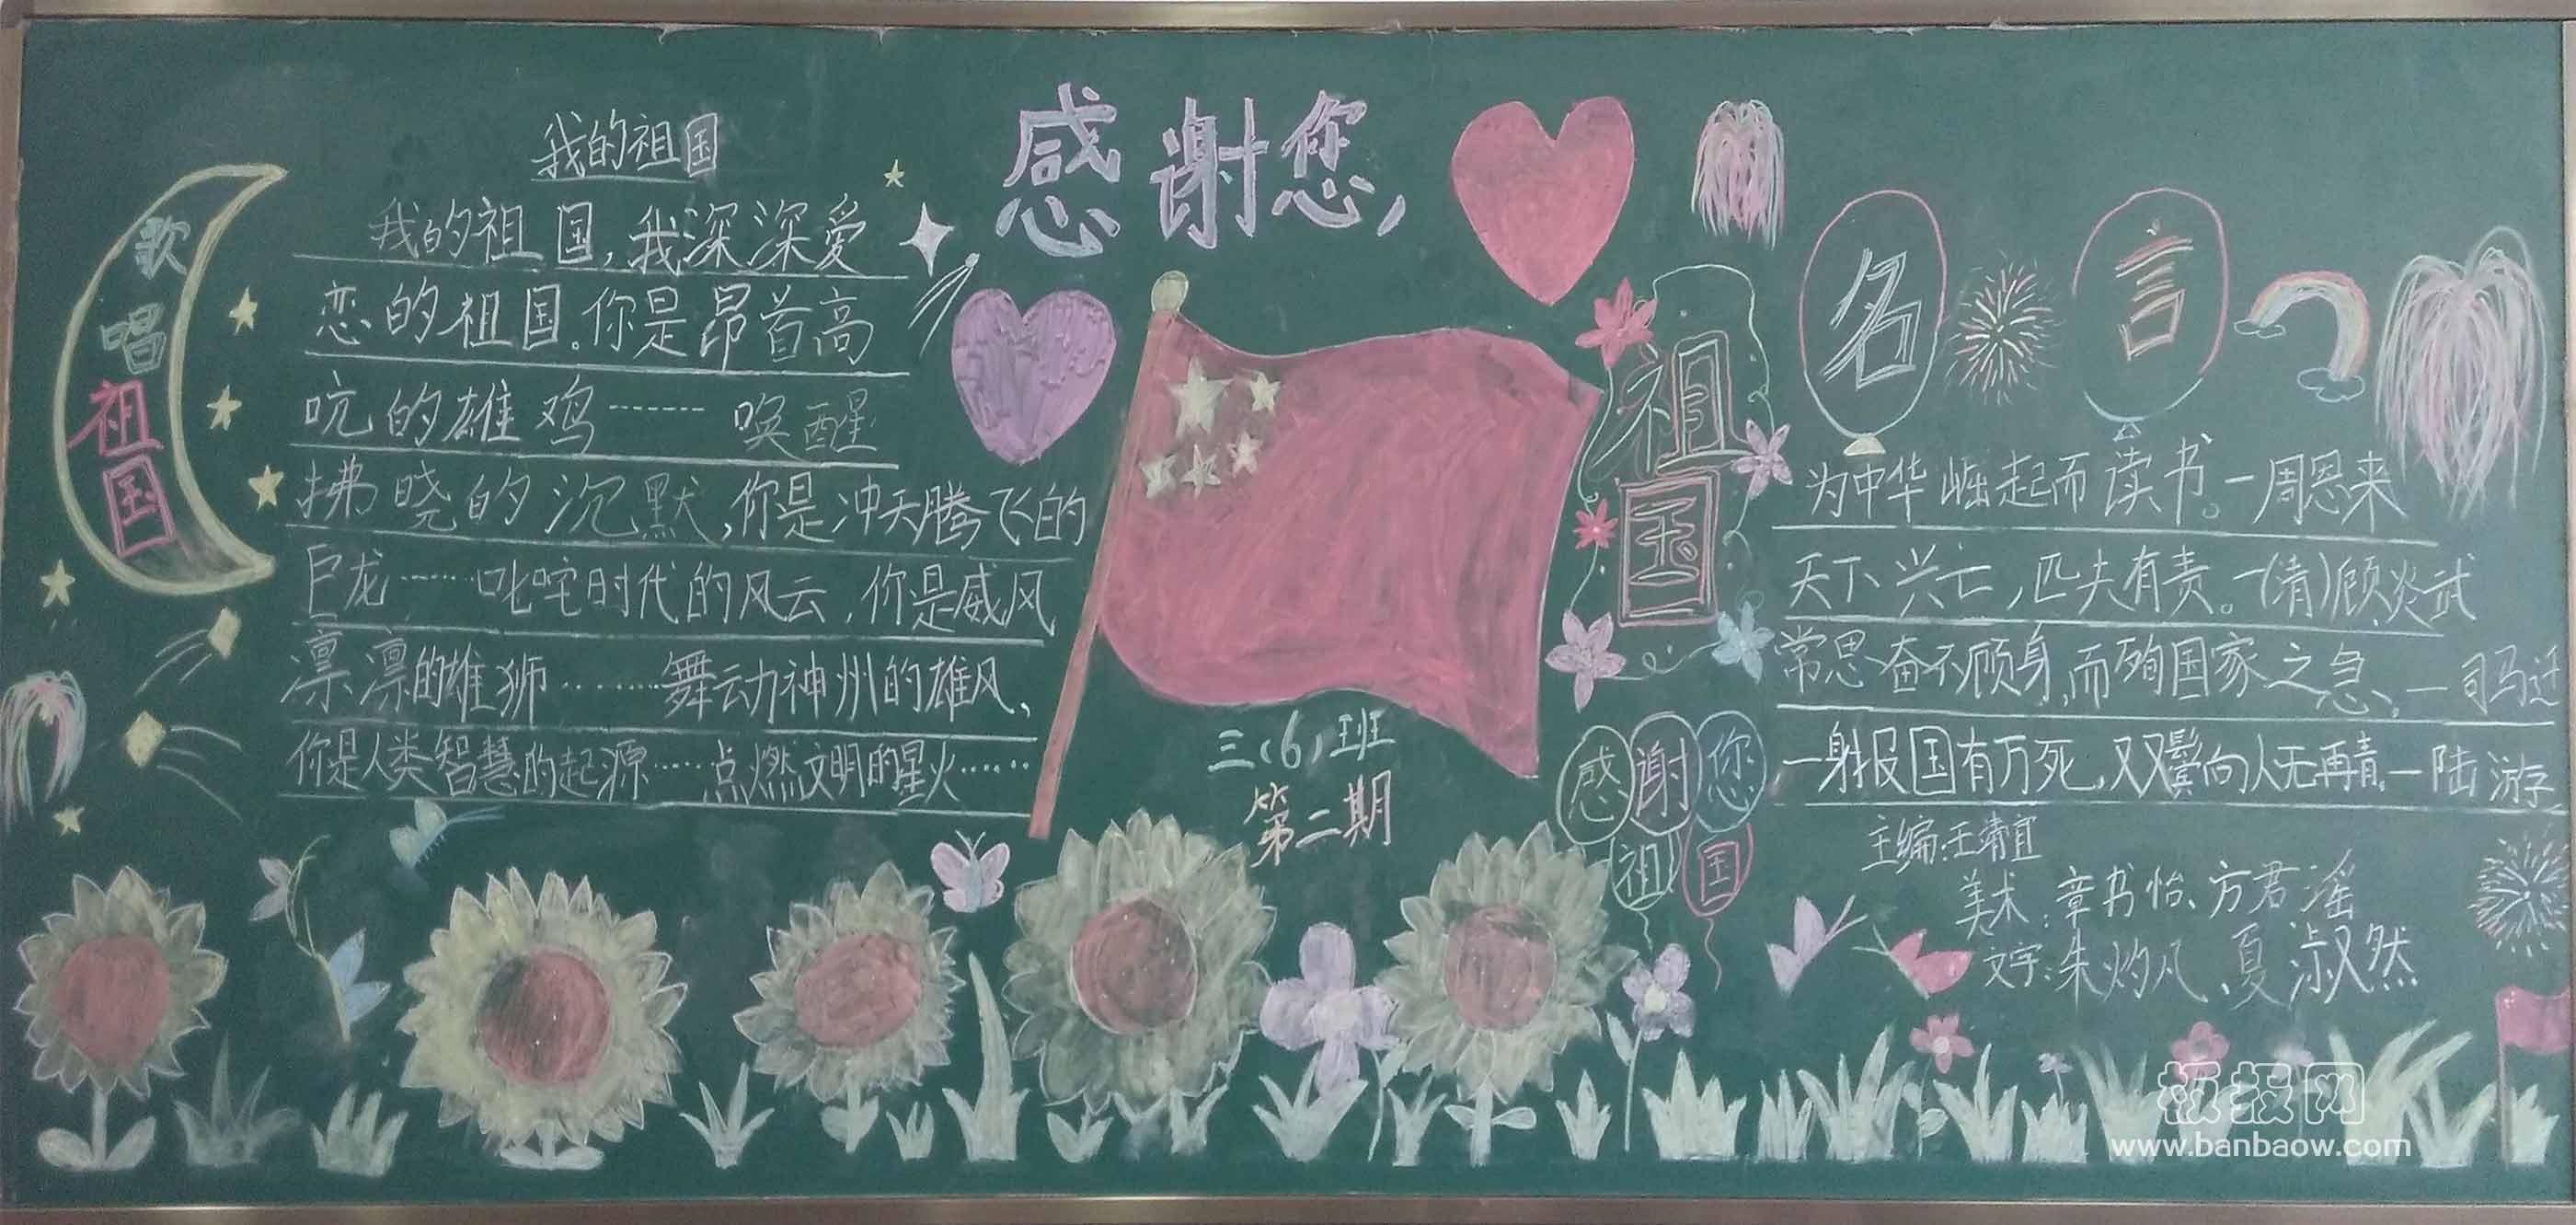 歌唱祖国
我的祖国
我的祖国,我深深爱
恋的祖国。你是昂首高
吭的雄鸡…… 唤醒
拂晓的沉默,你是冲天腾飞的
巨龙……叱咤时代的风云,你是威风
凛凛的雄狮………舞动神州的雄风、
你是人类智慧的起源……点燃文明的星火……
感谢您,
祖国
三(6)班
第二期
感谢您
祖国
名言
为中华崛起而读书。一周恩来
天下兴亡,匹夫有责。一(清)顾炎武
常思奋不顾身,而殉国家之急、一司马迁
一身报国有万死,双鬓向人无再青.一陆游
主编:王靖宜
美术:章书怡、方君滢
文字:朱灼凡、夏淑然
板报网
www.banbaow.com